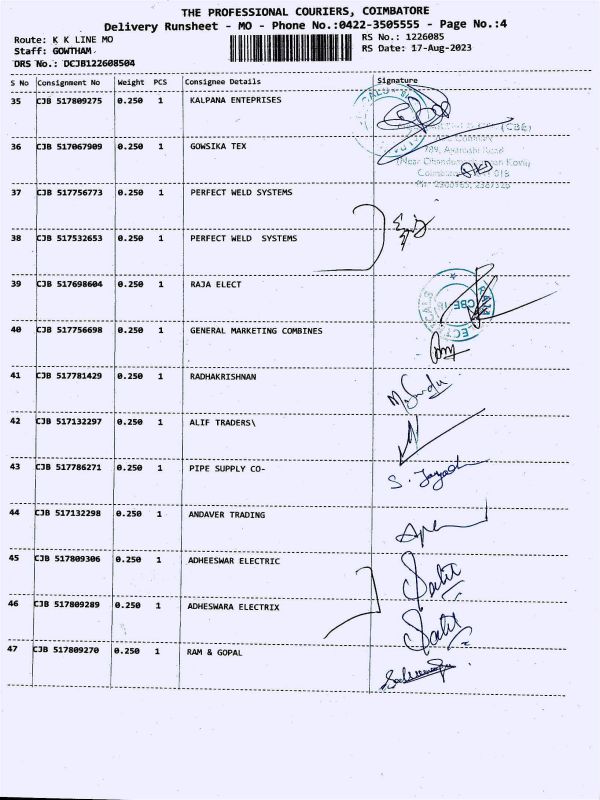 THE PROFESSIONAL COURIERS, COIMBATORE
Delivery Runsheet - MO - Phone No.:0422-3505555 - Page No.:4
Route: K K LINE MO
Staff: GOWTHAM
DRS No.: DCJB122608504
RS No.: 1226085
RS Date: 17-Aug-2023
S No Consignment No Weight PCS Consignee Details Signature
35 CJB 517809275 0.250 1 KALPANA ENTEPRISES
36 CJB 517067909 0.250 1 GOWSIKA TEX
37 CJB 517756773 0.250 1 PERFECT WELD SYSTEMS
38 CJB 517532653 0.250 1 PERFECT WELD SYSTEMS
39 CJB 517698604 0.250 1 RAJA ELECT
40 CJB 517756698 0.250 1 GENERAL MARKETING COMBINES
41 CJB 517781429 0.250 1 RADHAKRISHNAN
42 CJB 517132297 0.250 1 ALIF TRADERS\
43 CJB 517786271 0.250 1 PIPE SUPPLY CO-
S. Jayash
44 CJB 517132298 0.250 1 ANDAVER TRADING
45 CJB 517809306 0.250 1 ADHEESWAR ELECTRIC
46 CJB 517809289 0.250 1 ADHESWARA ELECTRIX
47 CJB 517809270 0.250 1 RAM & GOPAL